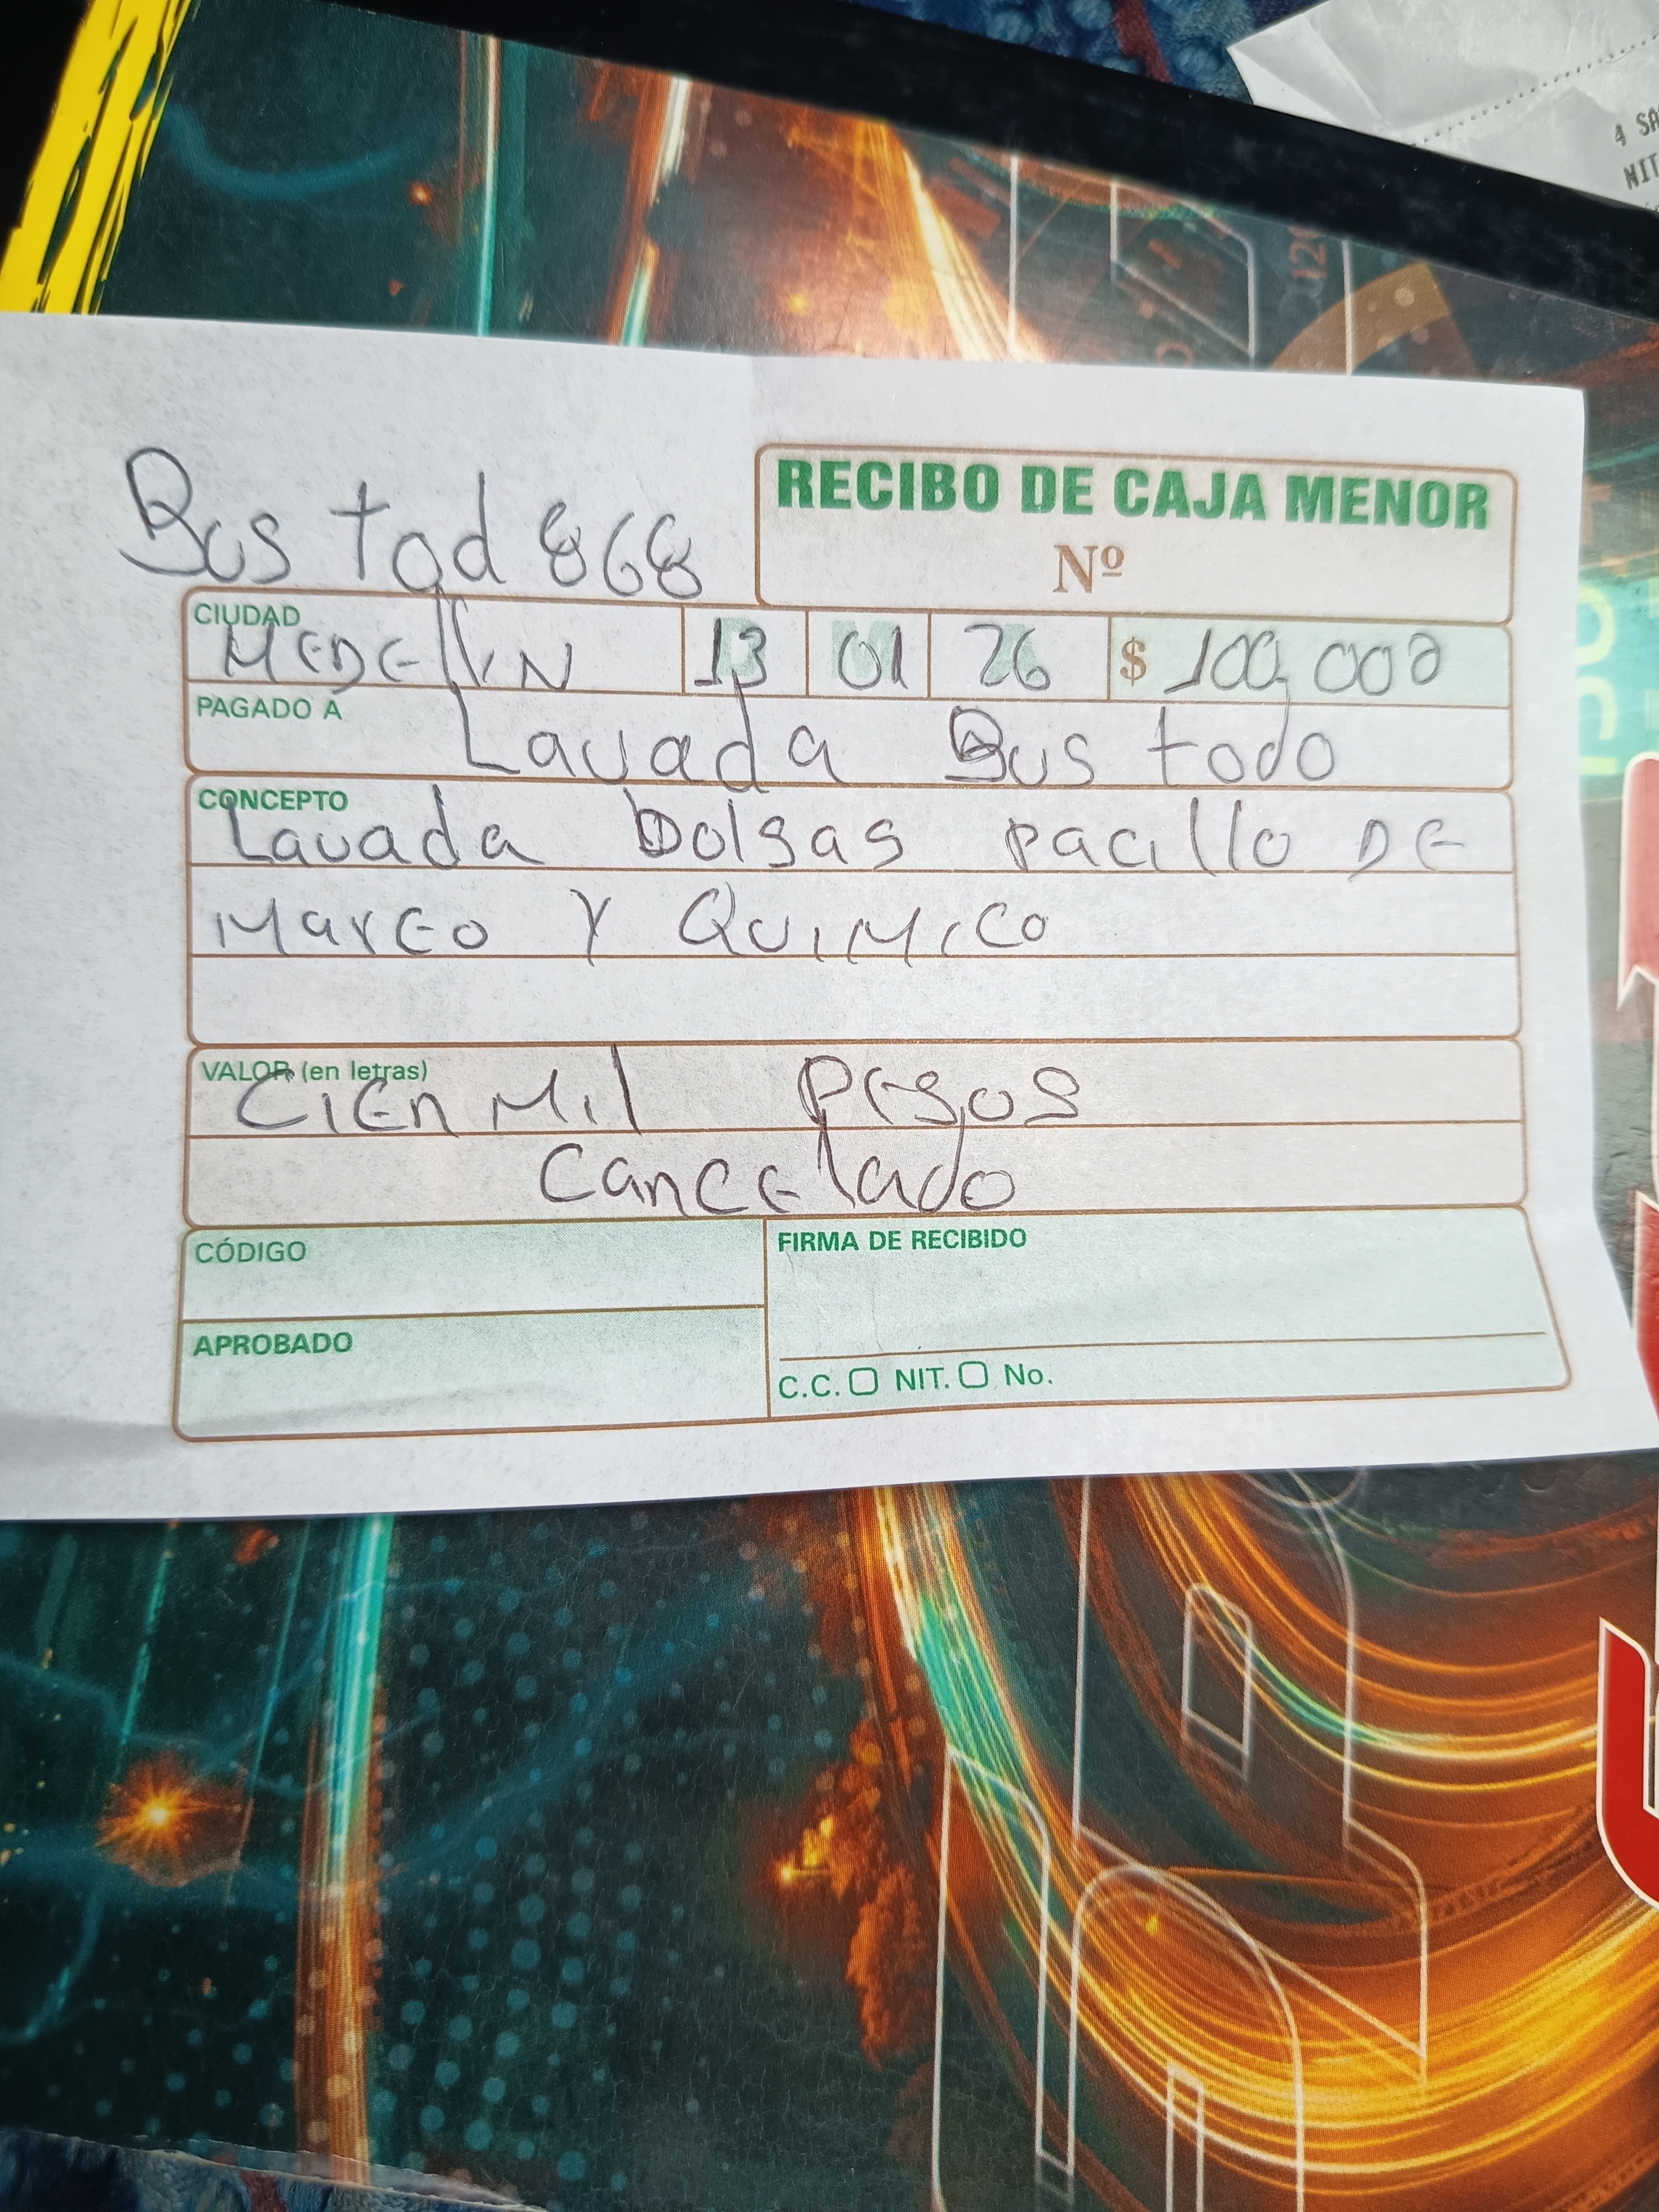 4 SA
NIT
RECIBO DE CAJA MENOR
Nº
Bus tod 868
CIUDAD
MEDEllIN 13 01 26 $ 100,000
PAGADO A
Lavada Bus todo
CONCEPTO
Lavada bolsas pacillo DE
Mareo Y QUIMICO
VALOR (en letras)
CIEn Mil PESOS
Cancelado
CÓDIGO
FIRMA DE RECIBIDO
APROBADO
C.C. NIT. No.